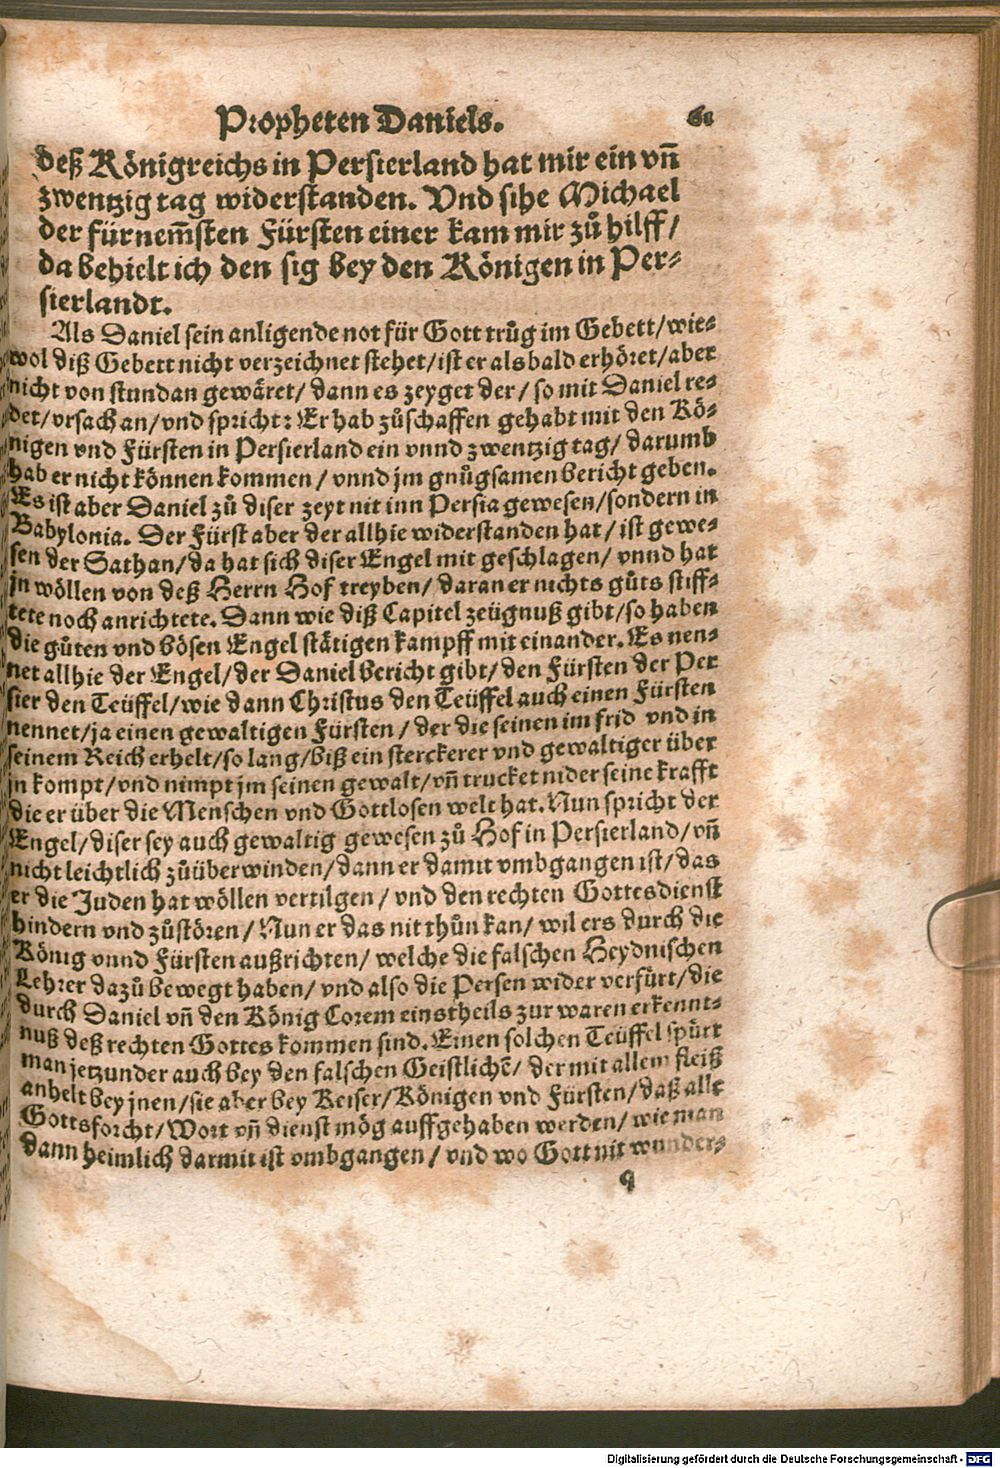 Propheten Daniels. 61
deß Königreichs in Persierland hat mir ein vñ
zwentzig tag widerstanden. Vnd sihe Michael
der fürnem̃sten Fürsten einer kam mir zů hilff/
da behielt ich den sig bey den Königen in Per-
sierlandt.
Als Daniel sein anligende not für Gott trůg im Gebett/wie-
wol diß Gebett nicht verzeichnet stehet/ist er als bald erhöret/aber
nicht von stund an gewäret/dann es zeyget der/so mit Daniel re-
det/vrsach an/vnd spricht: Er hab zůschaffen gehabt mit den Kö-
nigen vnd Fürsten in Persierland ein vnnd zwentzig tag/darumb
hab er nicht können kommen/vnnd jm gnůgsamen bericht geben.
Es ist aber Daniel zů diser zeyt nit inn Persia gewesen/sondern in
Babylonia. Der Fürst aber der allhie widerstanden hat/ist gewe-
sen der Sathan/da hat sich diser Engel mit geschlagen/vnnd hat
jn wöllen von deß Herrn Hof treyben/daran er nichts gůts stiff-
tete noch anrichtete. Dann wie diß Capitel zeügnuß gibt/so haben
die gůten vnd bösen Engel stätigen kampff mit einander. Es nen-
net allhie der Engel/der Daniel bericht gibt/den Fürsten der Per
sier den Teüffel/wie dann Christus den Teüffel auch einen Fürsten
nennet/ja einen gewaltigen Fürsten/der die seinen im frid vnd in
seinem Reich erhelt/so lang/biß ein sterckerer vnd gewaltiger über
jn kompt/vnd nimpt jm seinen gewalt/vñ trucket nider seine krafft
die er über die Menschen vnd Gottlosen welt hat. Nun spricht der
Engel/diser sey auch gewaltig gewesen zů Hof in Persierland/vñ
nicht leichtlich zůüberwinden/dann er damit vmbgangen ist/das
er die Juden hat wöllen vertilgen/vnd den rechten Gottesdienst
hindern vnd zůstören/Nun er das nit thůn kan/wil ers durch die
König vnnd Fürsten außrichten/welche die falschen Heydnischen
Lehrer dazů bewegt haben/vnd also die Persen wider verfürt/die
durch Daniel vñ den König Corem eins theils zur waren erkennt-
nuß deß rechten Gottes kommen sind. Einen solchen Teüffel spürt
man jetzunder auch bey den falschen Geistlichẽ/der mit allem fleiß
anhelt bey jnen/sie aber bey Keiser/Königen vnd Fürsten/daß alle
Gottsforcht/Wort vñ dienst mög auffgehaben werden/wie man
dann heimlich darmit ist vmbgangen/vnd wo Gott nit wunder-
q
Digitalisierung gefördert durch die Deutsche Forschungsgemeinschaft - DFG